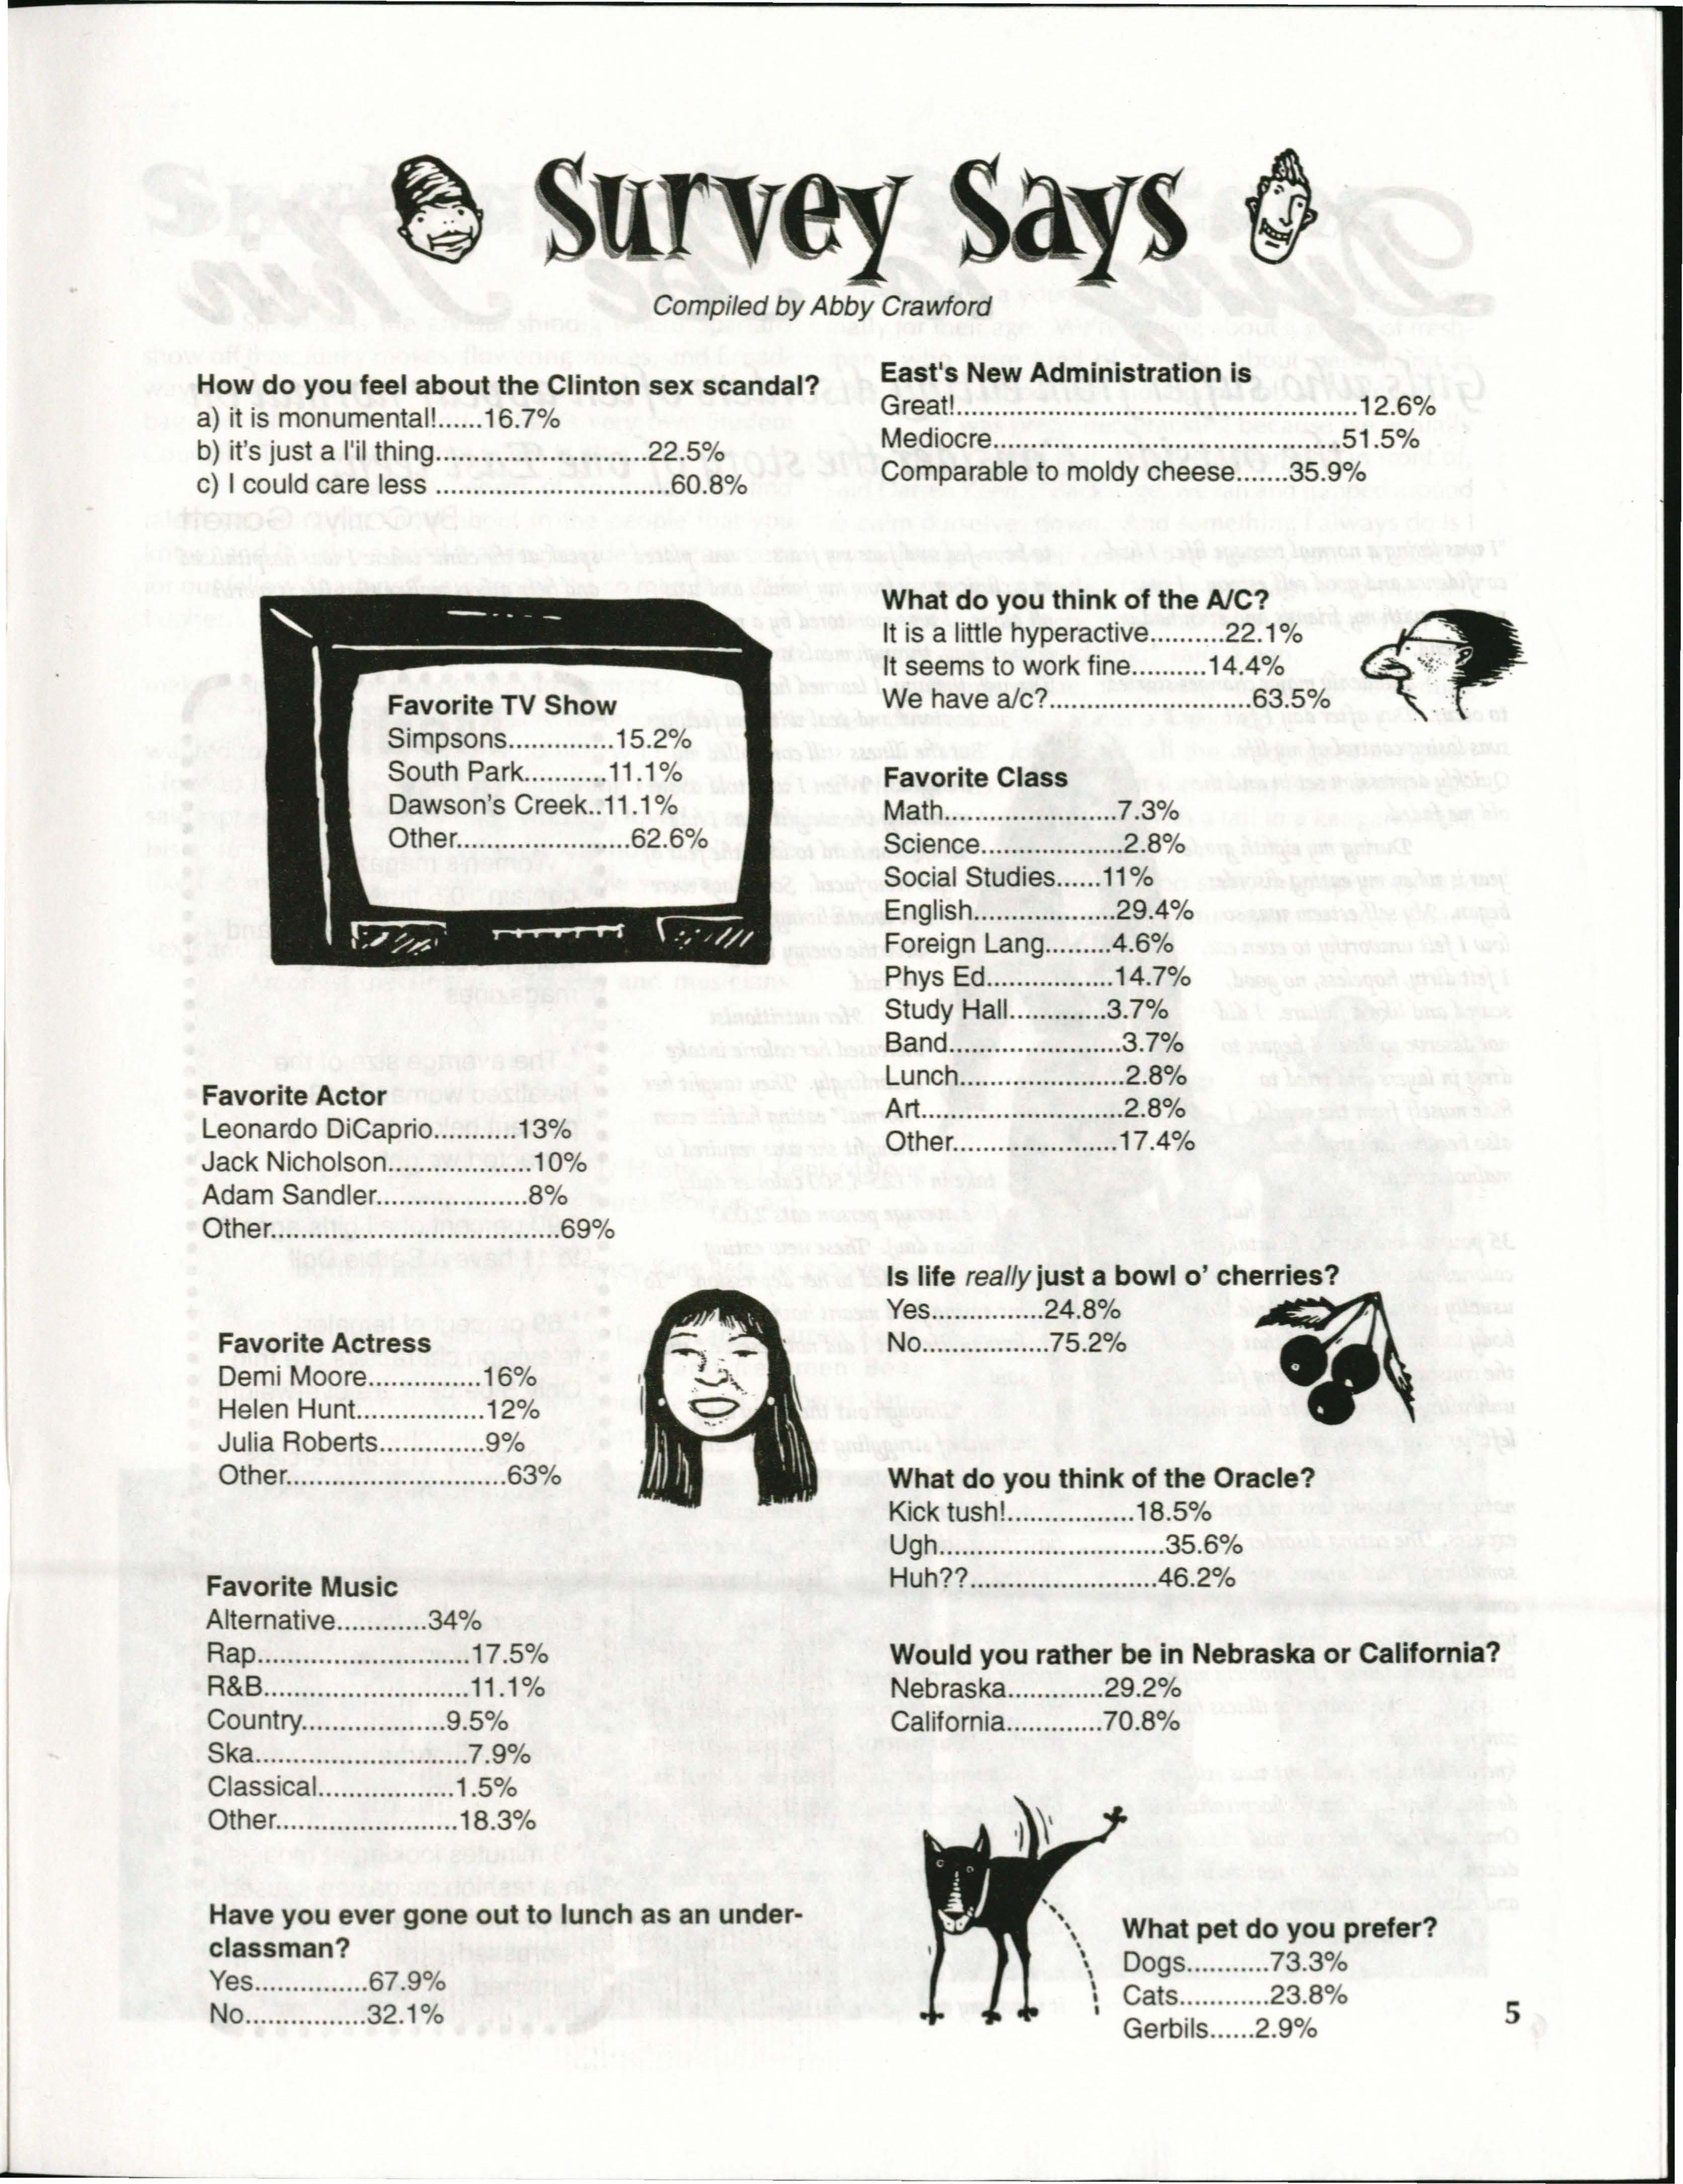 Survey Says
Compiled by Abby Crawford
How do you feel about the Clinton sex scandal?
a) it is monumental!......16.7%
b) it's just a l'il thing.............................22.5%
c) I could care less ................................60.8%
Favorite TV Show
Simpsons..............15.2%
South Park...........11.1%
Dawson's Creek..11.1%
Other.......................62.6%
Favorite Actor
Leonardo DiCaprio...........13%
Jack Nicholson...................10%
Adam Sandler....................8%
Other......................................69%
Favorite Actress
Demi Moore...............16%
Helen Hunt.................12%
Julia Roberts..............9%
Other.............................63%
Favorite Music
Alternative............34%
Rap............................17.5%
R&B...........................11.1%
Country...................9.5%
Ska............................7.9%
Classical..................1.5%
Other........................18.3%
Have you ever gone out to lunch as an under-
classman?
Yes...............67.9%
No................32.1%
East's New Administration is
Great!.....................................................12.6%
Mediocre..............................................51.5%
Comparable to moldy cheese.......35.9%
What do you think of the A/C?
It is a little hyperactive..........22.1%
It seems to work fine..........14.4%
We have a/c?...........................63.5%
Favorite Class
Math.......................7.3%
Science...................2.8%
Social Studies......11%
English...................29.4%
Foreign Lang.........4.6%
Phys Ed.................14.7%
Study Hall.............3.7%
Band.......................3.7%
Lunch......................2.8%
Art...........................2.8%
Other......................17.4%
Is life really just a bowl o' cherries?
Yes...............24.8%
No.................75.2%
What do you think of the Oracle?
Kick tush!.................18.5%
Ugh..............................35.6%
Huh??.........................46.2%
Would you rather be in Nebraska or California?
Nebraska.............29.2%
California.............70.8%
What pet do you prefer?
Dogs...........73.3%
Cats............23.8%
Gerbils......2.9%
5